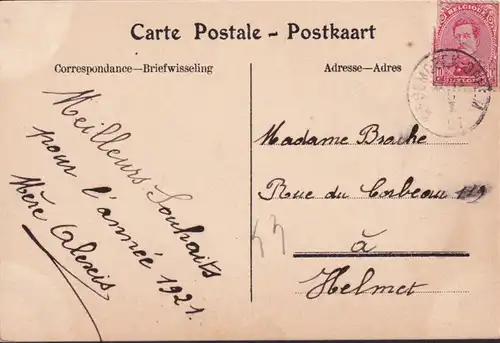 Carte Postale - Postkaart
Correspondance—Briefwisseling
Adresse—Adres
BELGIQUE
10
BELGIE
Meilleurs Souhaits
pour l'année 1921.
Mère Alexis
Madame Brache
Rue du Corbeau 119
à
Helmet